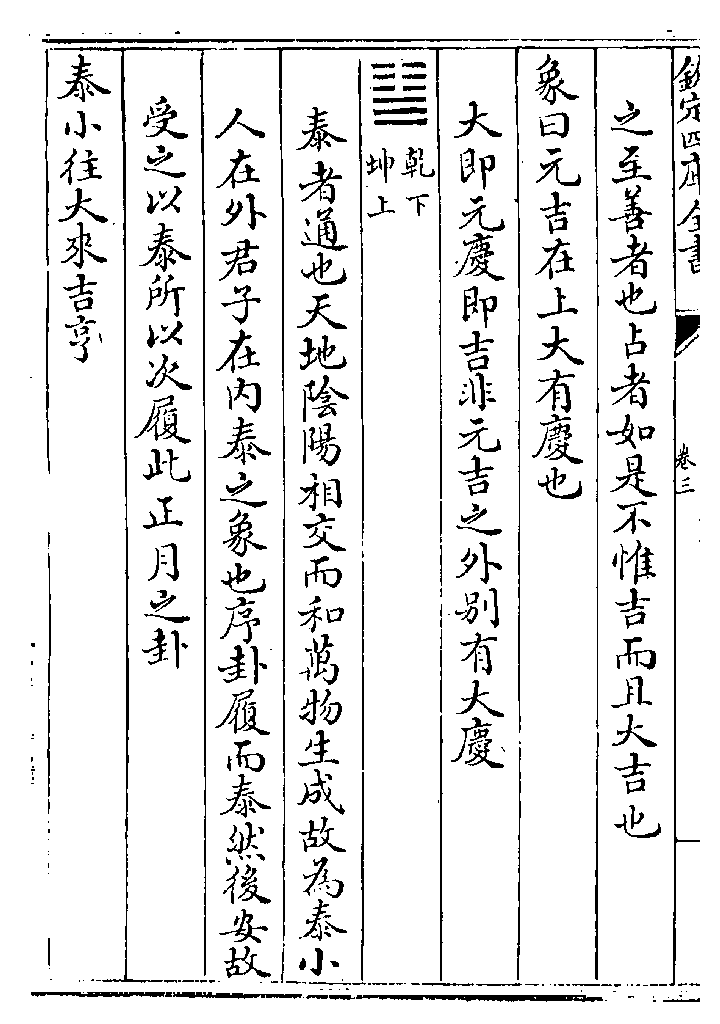 欽定四庫全書
卷三
之至善者也占者如是不惟吉而且大吉也
象曰元吉在上大有慶也
大即元慶即吉非元吉之外別有大慶
䷊乾下坤上
泰者通也天地陰陽相交而和萬物生成故為泰小
人在外君子在內泰之象也序卦履而泰然後安故
受之以泰所以次履此正月之卦
泰小往大來吉亨